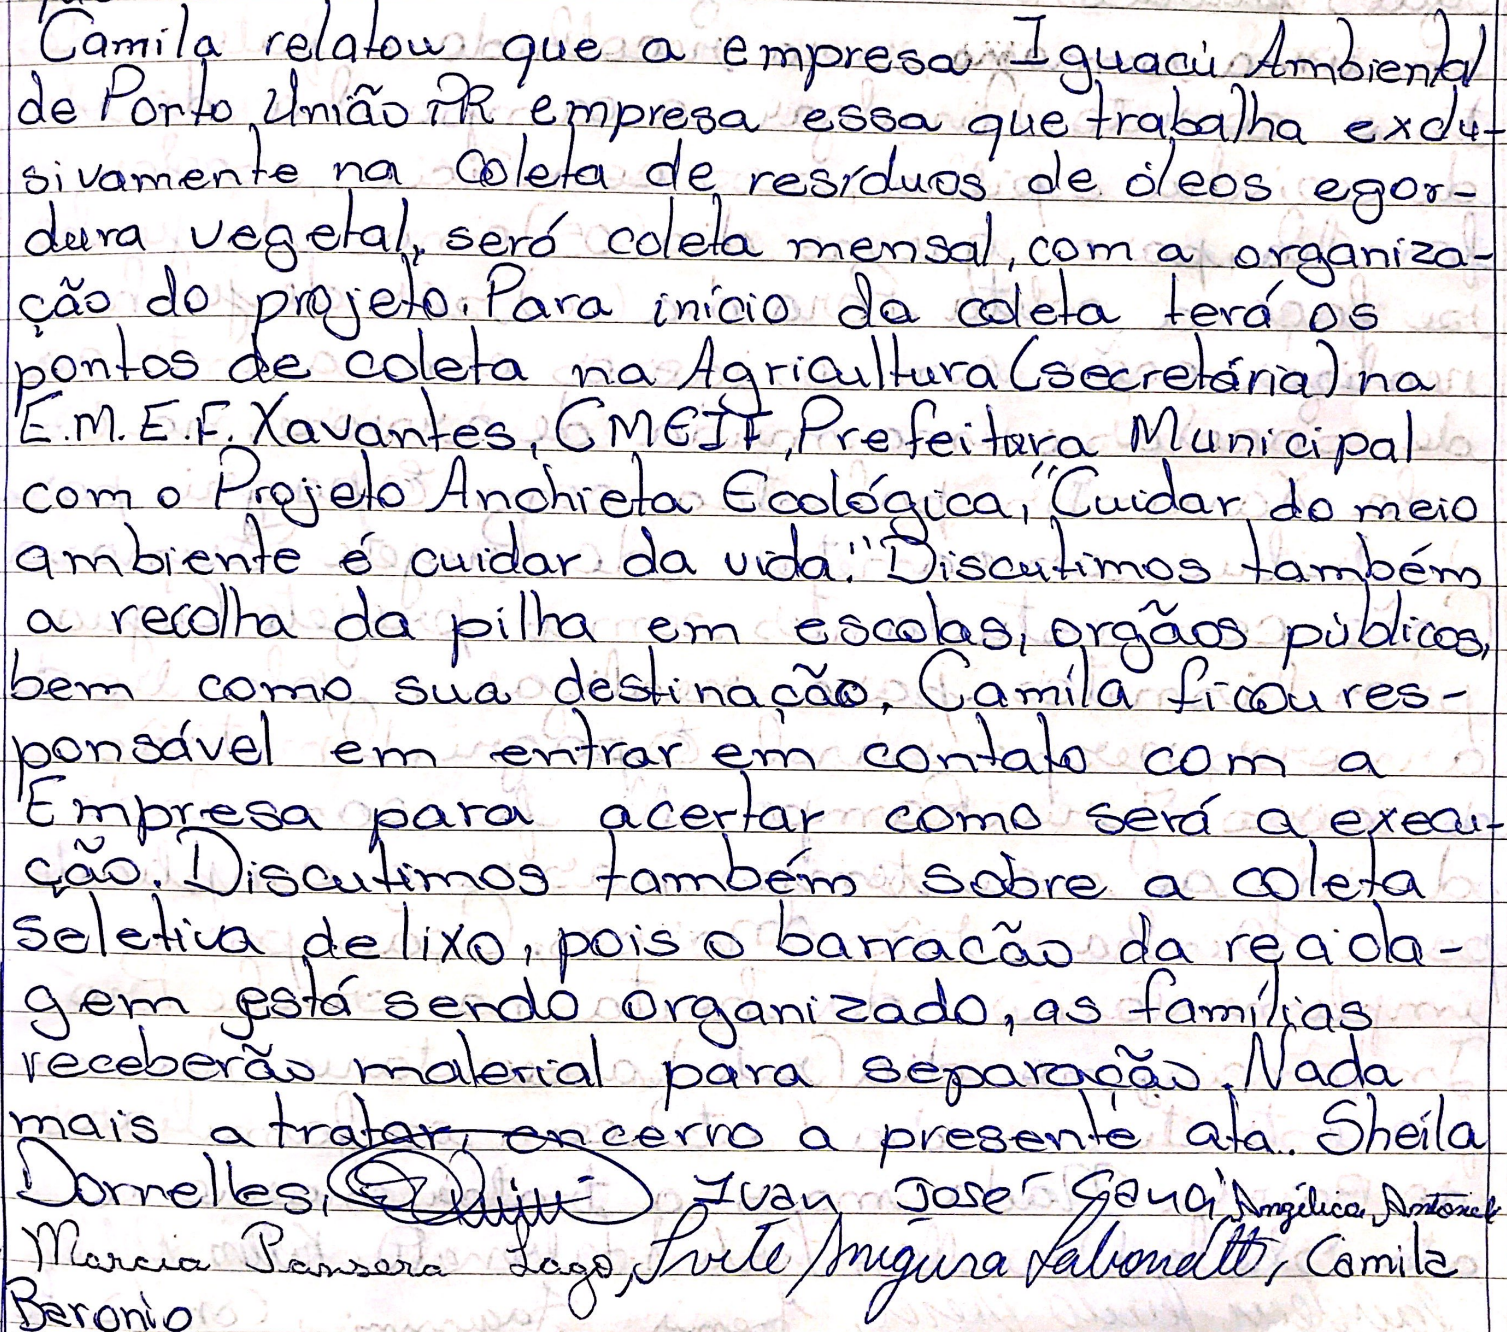 Camila relatou que a empresa Iguaçú Ambiental
de Porto União PR empresa essa que trabalha exclu-
sivamente na coleta de resíduos de óleos e gor-
dura vegetal, será coleta mensal, com a organiza-
ção do projeto. Para início da coleta terá os
pontos de coleta na Agricultura (secretária) na
E.M.E.F. Xavantes, CMEII, Prefeitura Municipal
com o Projeto Anchieta Ecológica, "Cuidar do meio
ambiente é cuidar da vida." Discutimos também
a recolha da pilha em escolas, orgãos públicos,
bem como sua destinação, Camila ficou res-
ponsável em entrar em contato com a
Empresa para acertar como será a execu-
ção. Discutimos também sobre a coleta
seletiva de lixo, pois o barracão da recicla-
gem está sendo organizado, as famílias
receberão material para separação. Nada
mais a tratar, encerro a presente ata. Sheila
Dornelles, Ivan José Angélica
Marcia Pansera Lago, Camila
Beronio